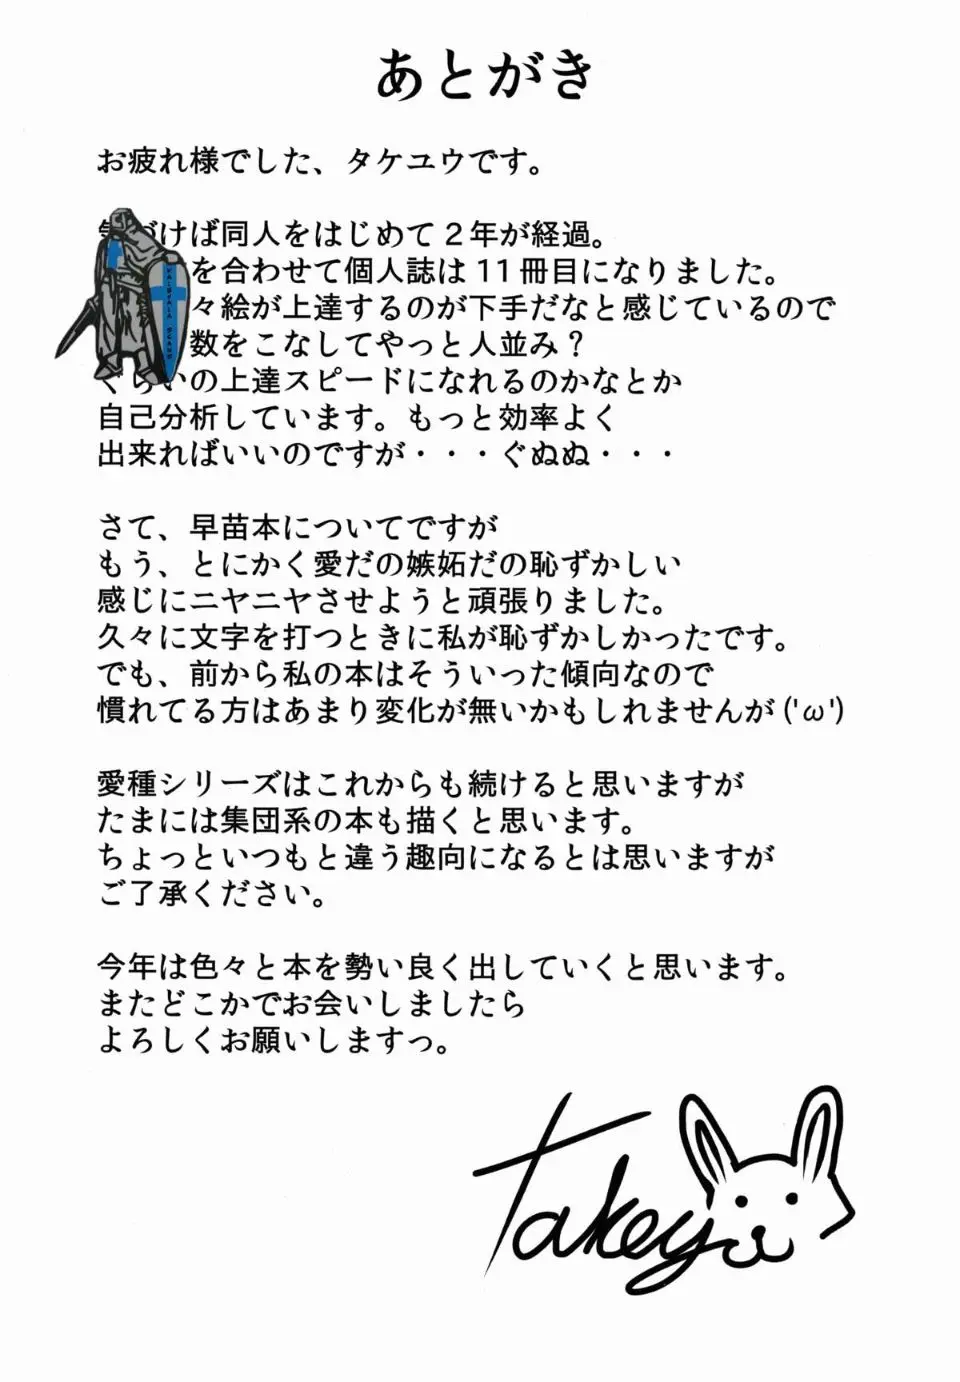 あとがき
お疲れ様でした、タケユウです。
づけば同人をはじめて2年が経過。
を合わせて個人誌は11冊目になりました。
々絵が上達するのが下手だなと感じているので
数をこなしてやっと人並み？
ぐらいの上達スピードになれるのかなとか
自己分析しています。もっと効率よく
出来ればいいのですが・・・ぐぬぬ・・・
さて、早苗本についてですが
もう、とにかく愛だの嫉妬だの恥ずかしい
感じにニヤニヤさせようと頑張りました。
久々に文字を打つときに私が恥ずかしかったです。
でも、前から私の本はそういった傾向なので
慣れてる方はあまり変化が無いかもしれませんが('ω')
愛種シリーズはこれからも続けると思いますが
たまには集団系の本も描くと思います。
ちょっといつもと違う趣向になるとは思いますが
ご了承ください。
今年は色々と本を勢い良く出していくと思います。
またどこかでお会いしましたら
よろしくお願いしますっ。
Takeyu